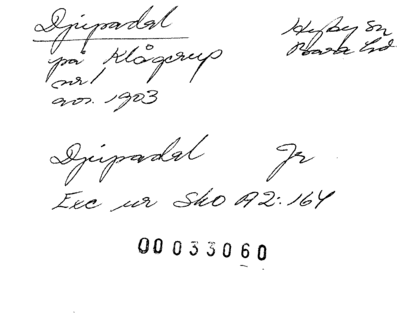 Djupadal
Hyby sn
på Klågerup
Bara hd
nr 1
avs. 1903
Djupadal Jr
Exc ur Sko A2:164
00033060